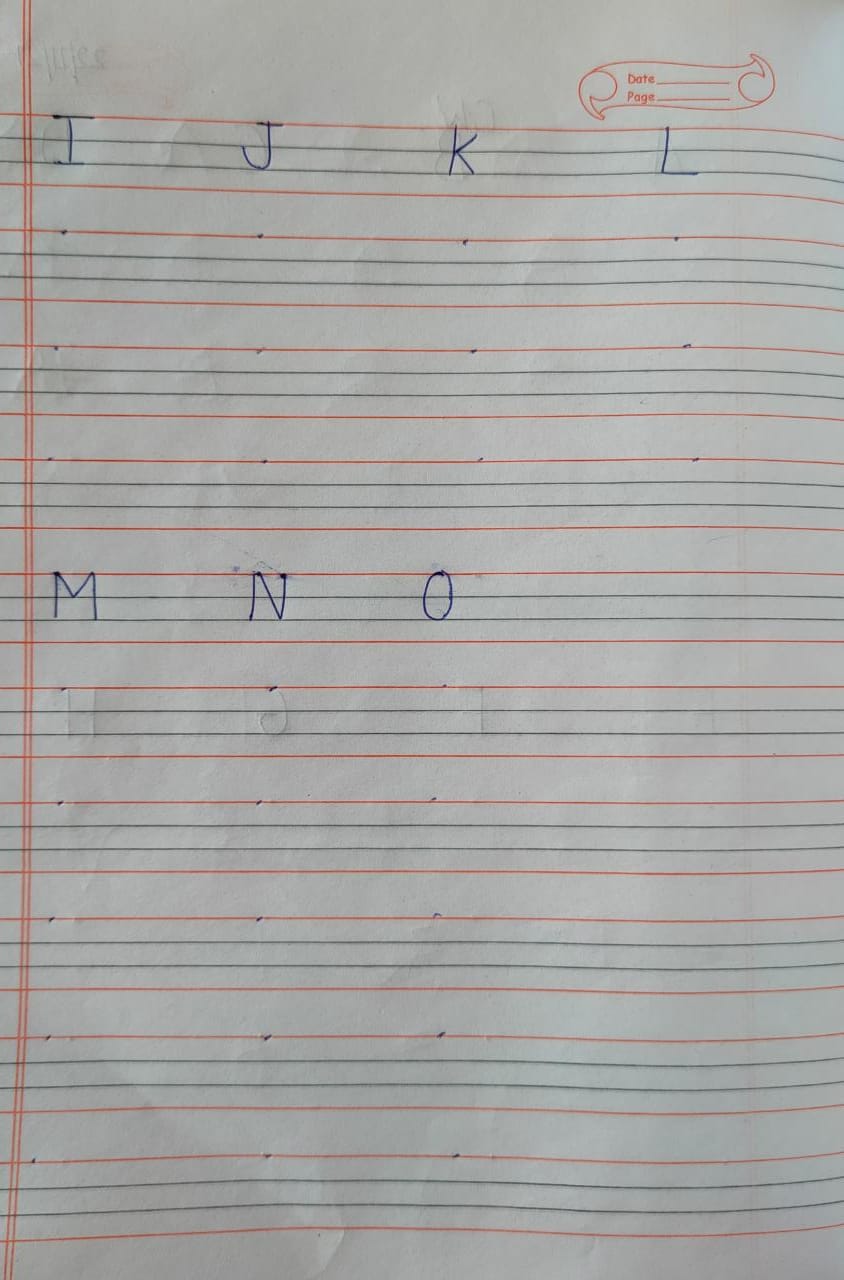 Date
Page
I J K L
M N O